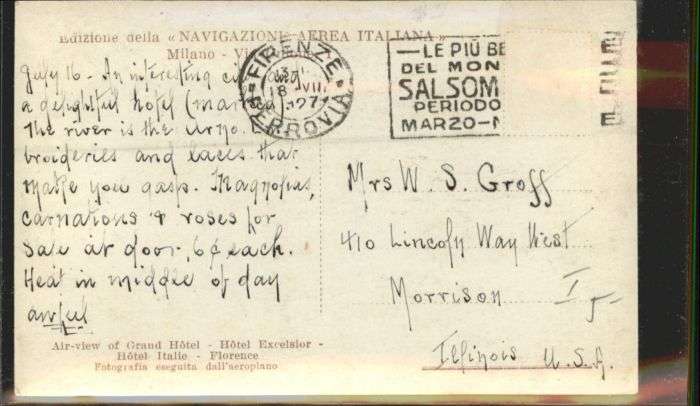 Edizione della « NAVIGAZIONE AEREA ITALIANA »
Milano - Vi
FIRENZE
FERROVIA
18 VII
— LE PIÙ BE
DEL MON
SALSOM
PERIODO
MARZO-
July 16 - In interesting ci
a delightful hotel (mar
The river is the Arno.
broideries and laces that
make you gasp. Magnolias,
carnations & roses for
sale at door, 6¢ each.
Heat in middle of day
awful
Mrs W. S. Groff
410 Lincoln Way West
Morrison
Illinois U.S.A.
Air-view of Grand Hôtel - Hôtel Excelsior -
Hôtel Italie - Florence
Fotografia eseguita dall'aeroplano